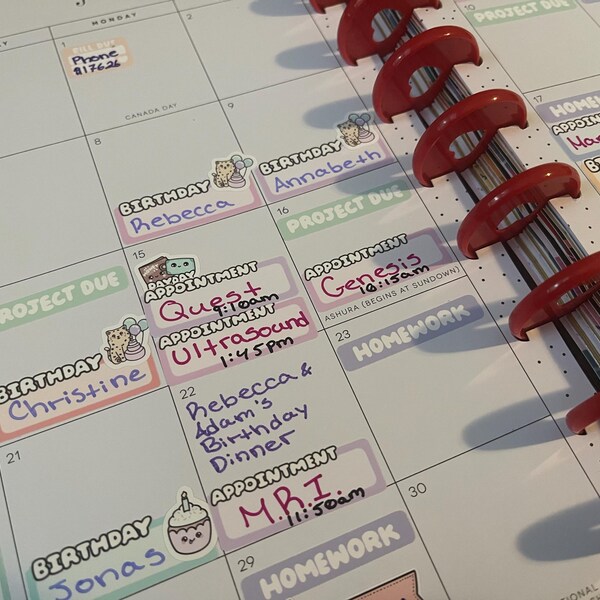 MONDAY
1
BILL DUE
Phone
$176.26
CANADA DAY
2
8
BIRTHDAY
Rebecca
9
BIRTHDAY
Annabeth
10
PROJECT DUE
PROJECT DUE
BIRTHDAY
Christine
15
PAYDAY
APPOINTMENT
Quest
9:10am
APPOINTMENT
Ultrasound
1:45pm
16
PROJECT DUE
APPOINTMENT
Genesis
10:15am
ASHURA (BEGINS AT SUNDOWN)
17
HOMEW
APPOIN
Ma
BI
21
BIRTHDAY
Jonas
22
Rebecca &
Adam's
Birthday
Dinner
APPOINTMENT
M.R.I.
11:50am
23
HOMEWORK
29
HOMEWORK
30